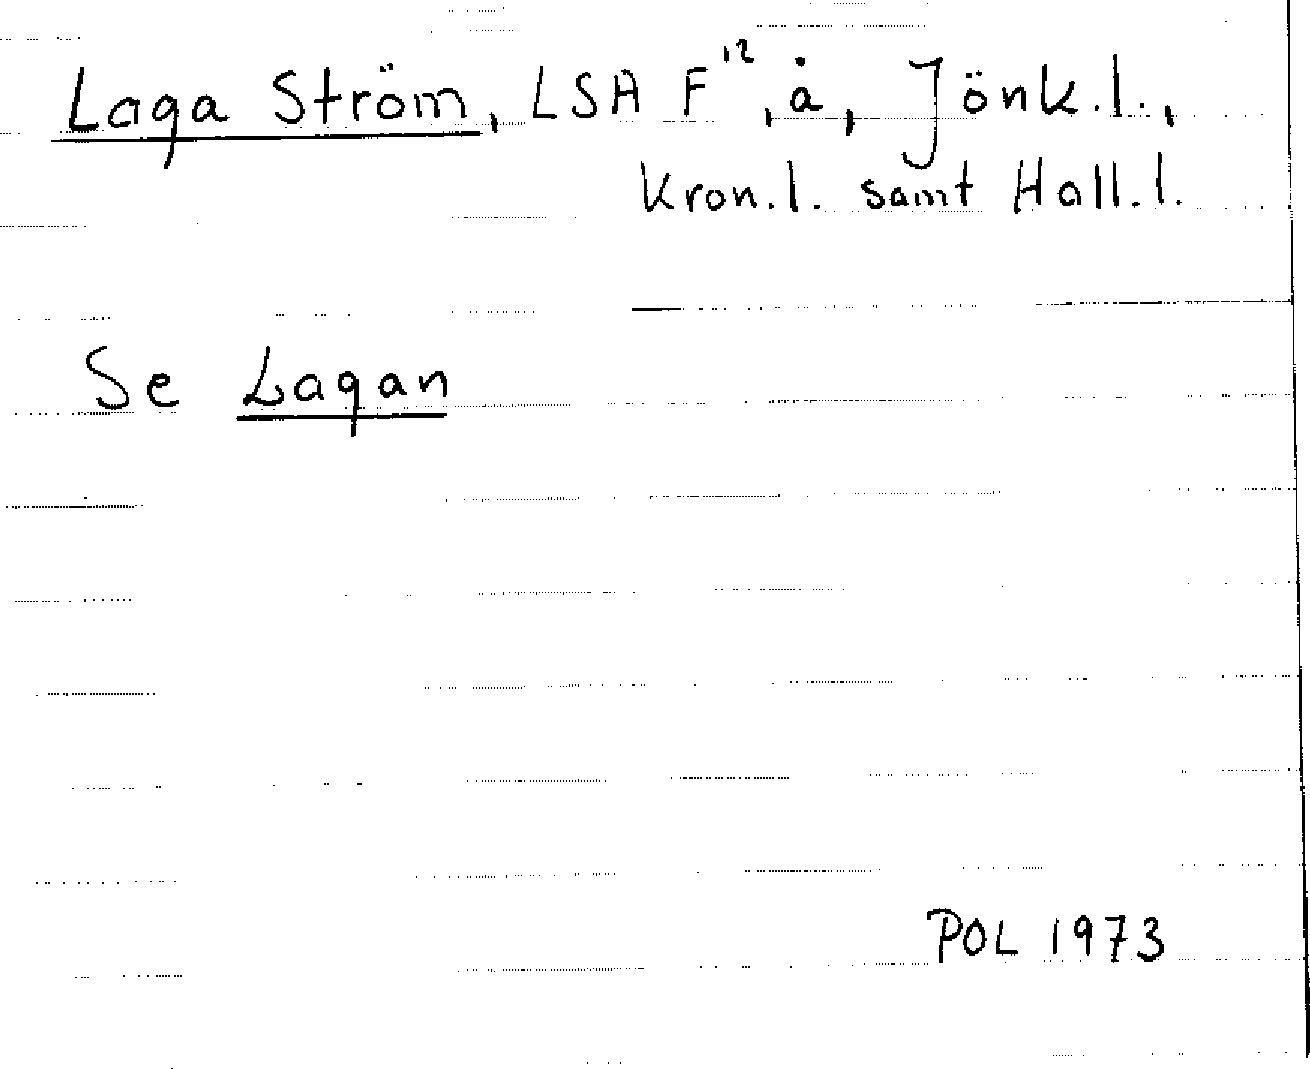 Laga Ström, LSA F¹², å, Jönk.l.,
Kron.l. samt Hall.l.
Se Lagan
POL 1973